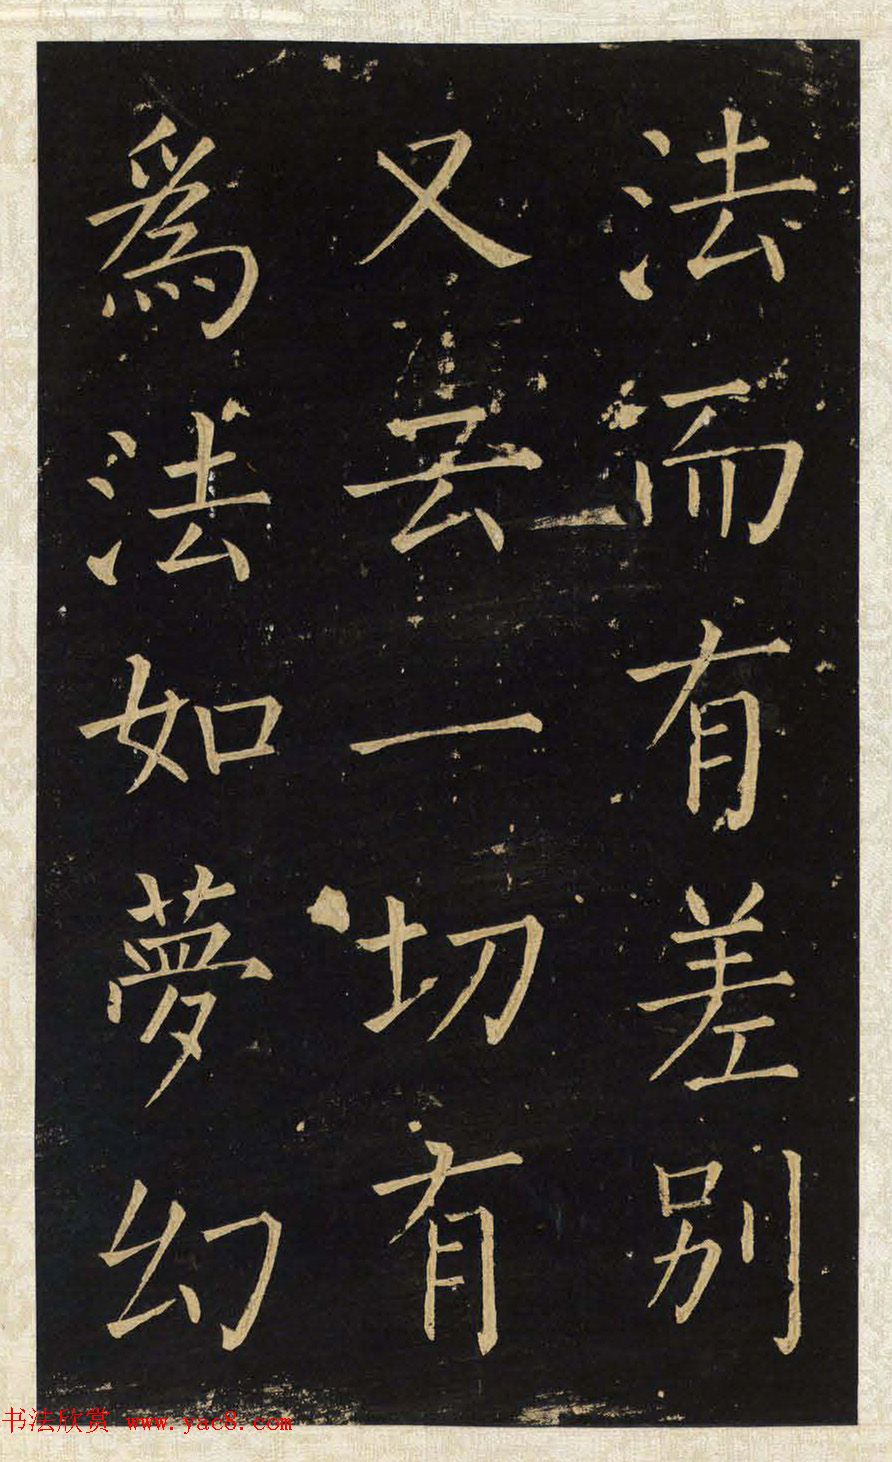 法而有差别
又云一切有
爲法如夢幻
书法欣赏 www.yac8.com